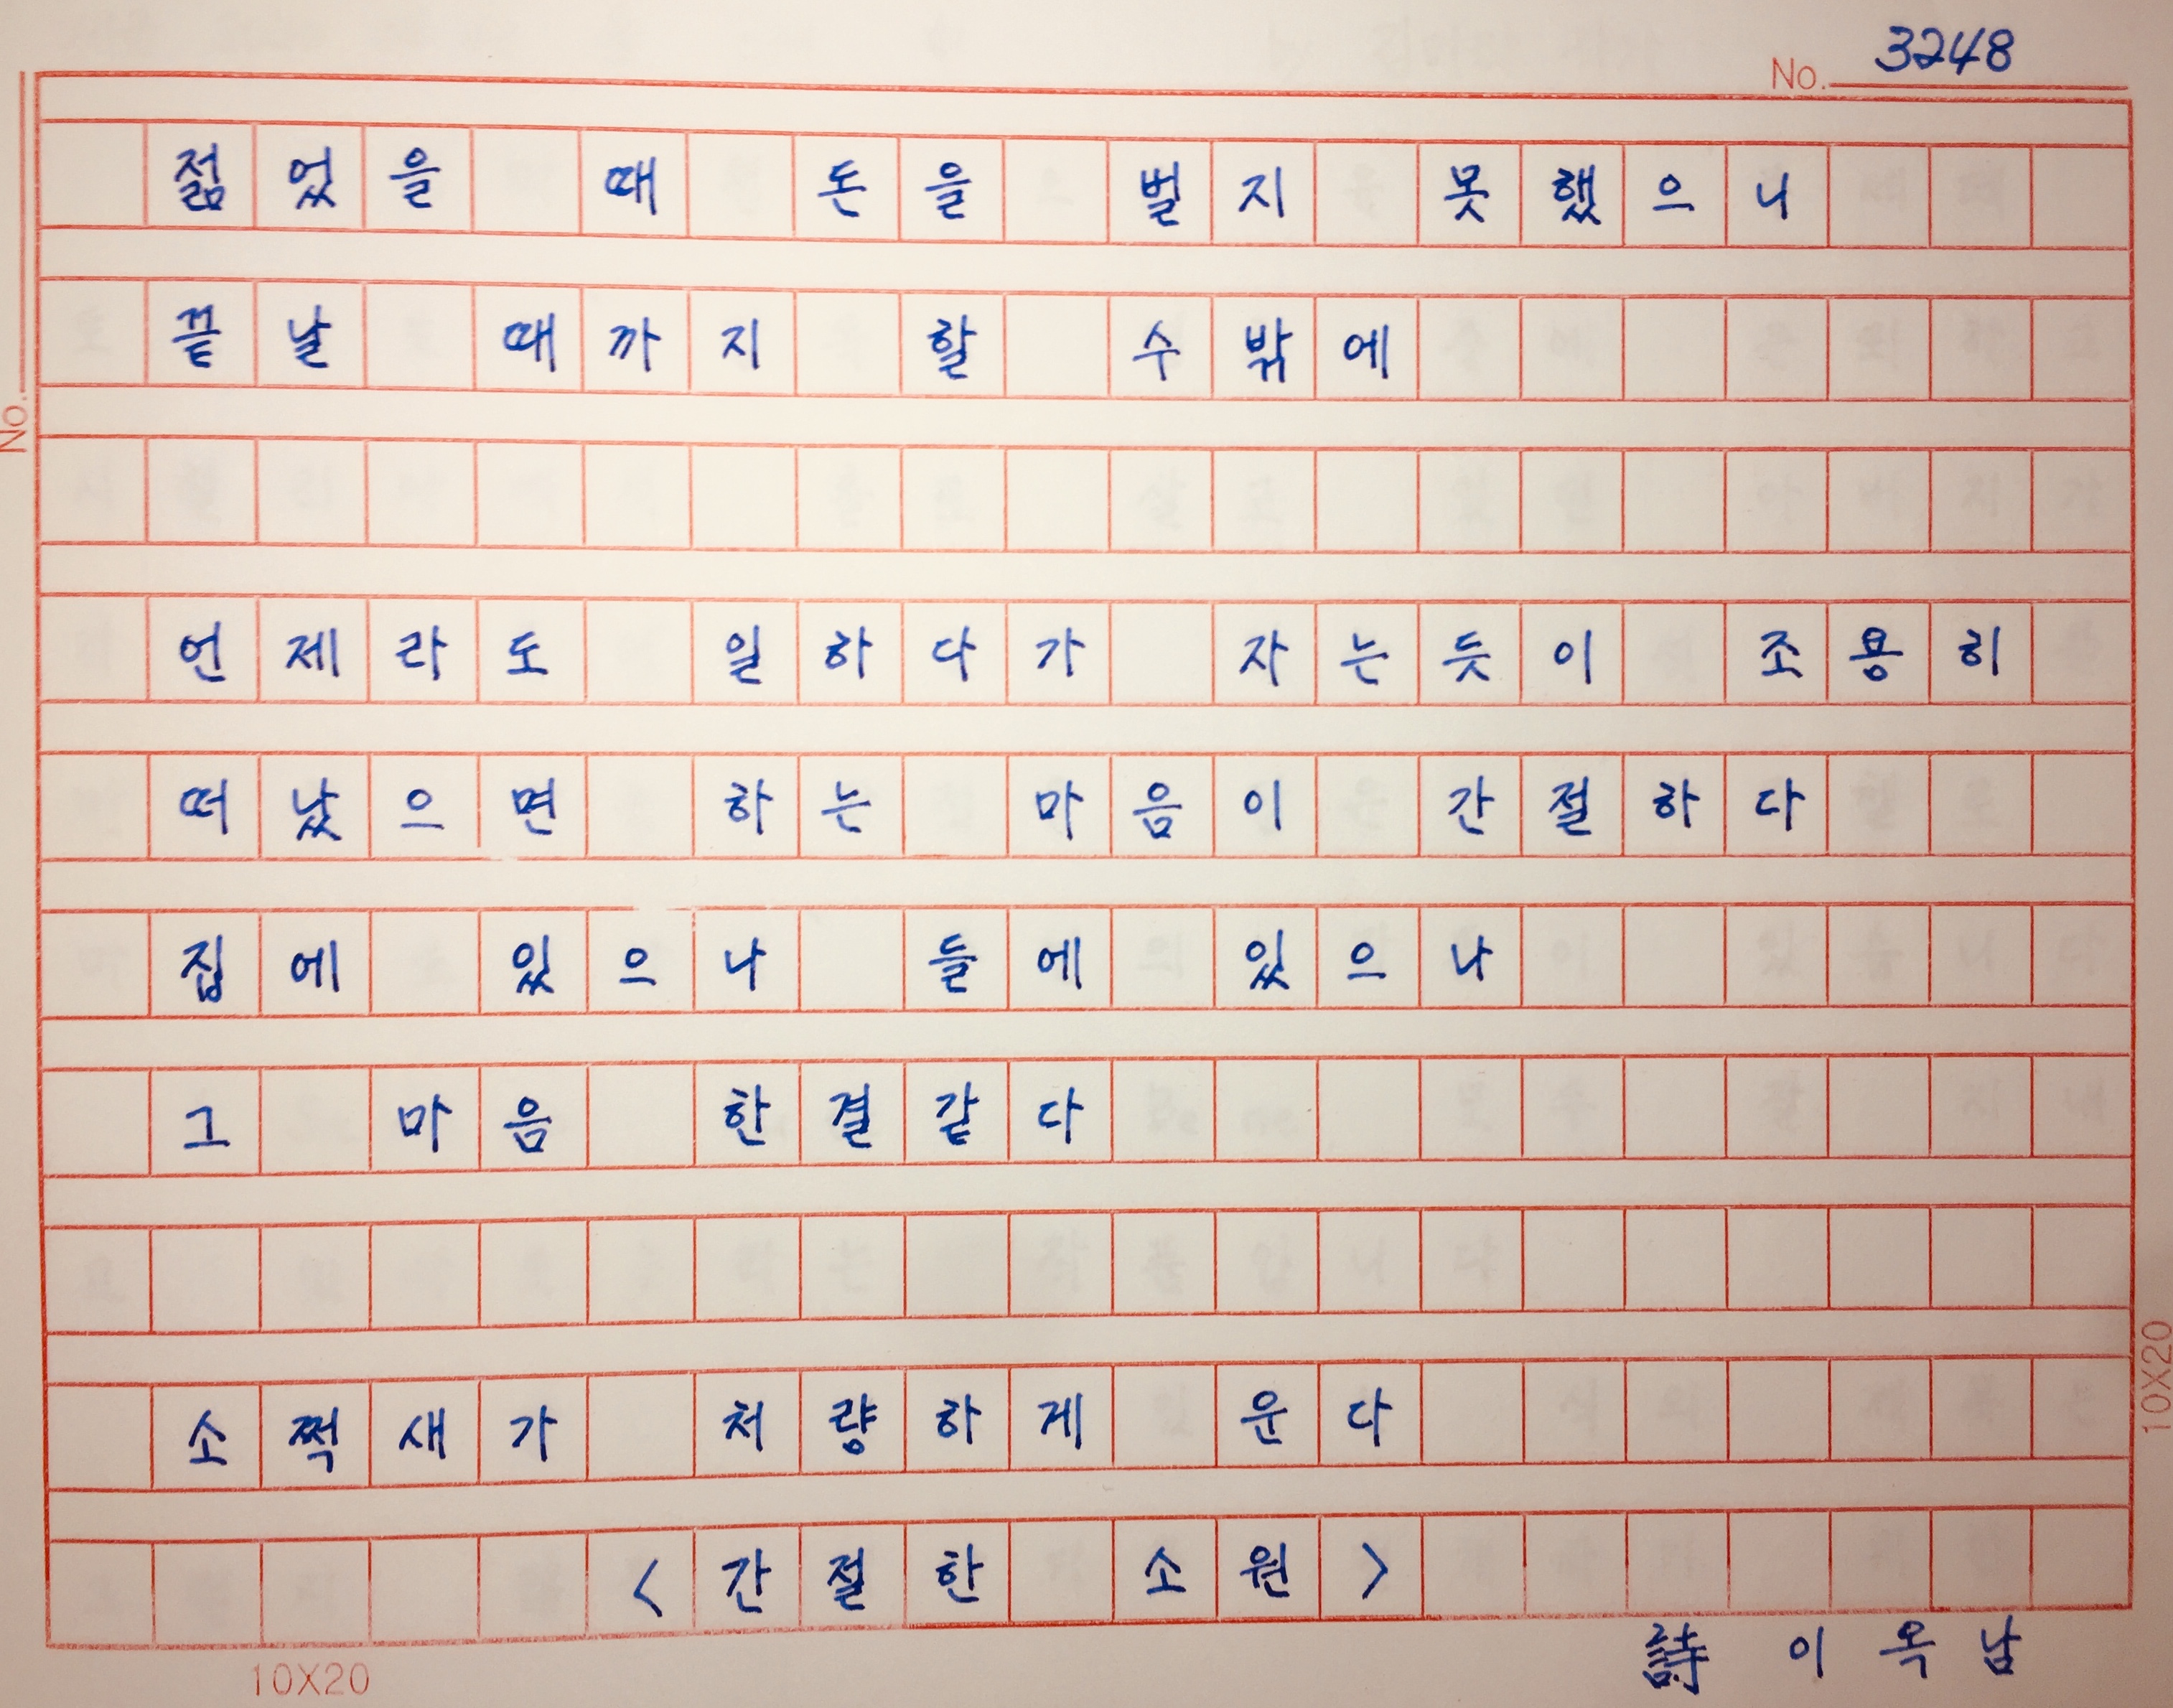 No. 3248
젊었을 때 돈을 벌지 못했으니
끝날 때까지 할 수밖에
No.
언제라도 일하다가 자는듯이 조용히
떠났으면 하는 마음이 간절하다
집에 있으나 들에 있으나
그 마음 한결같다
소쩍새가 처량하게 운다
10X20
<간절한 소원>
詩 이옥남
10X20